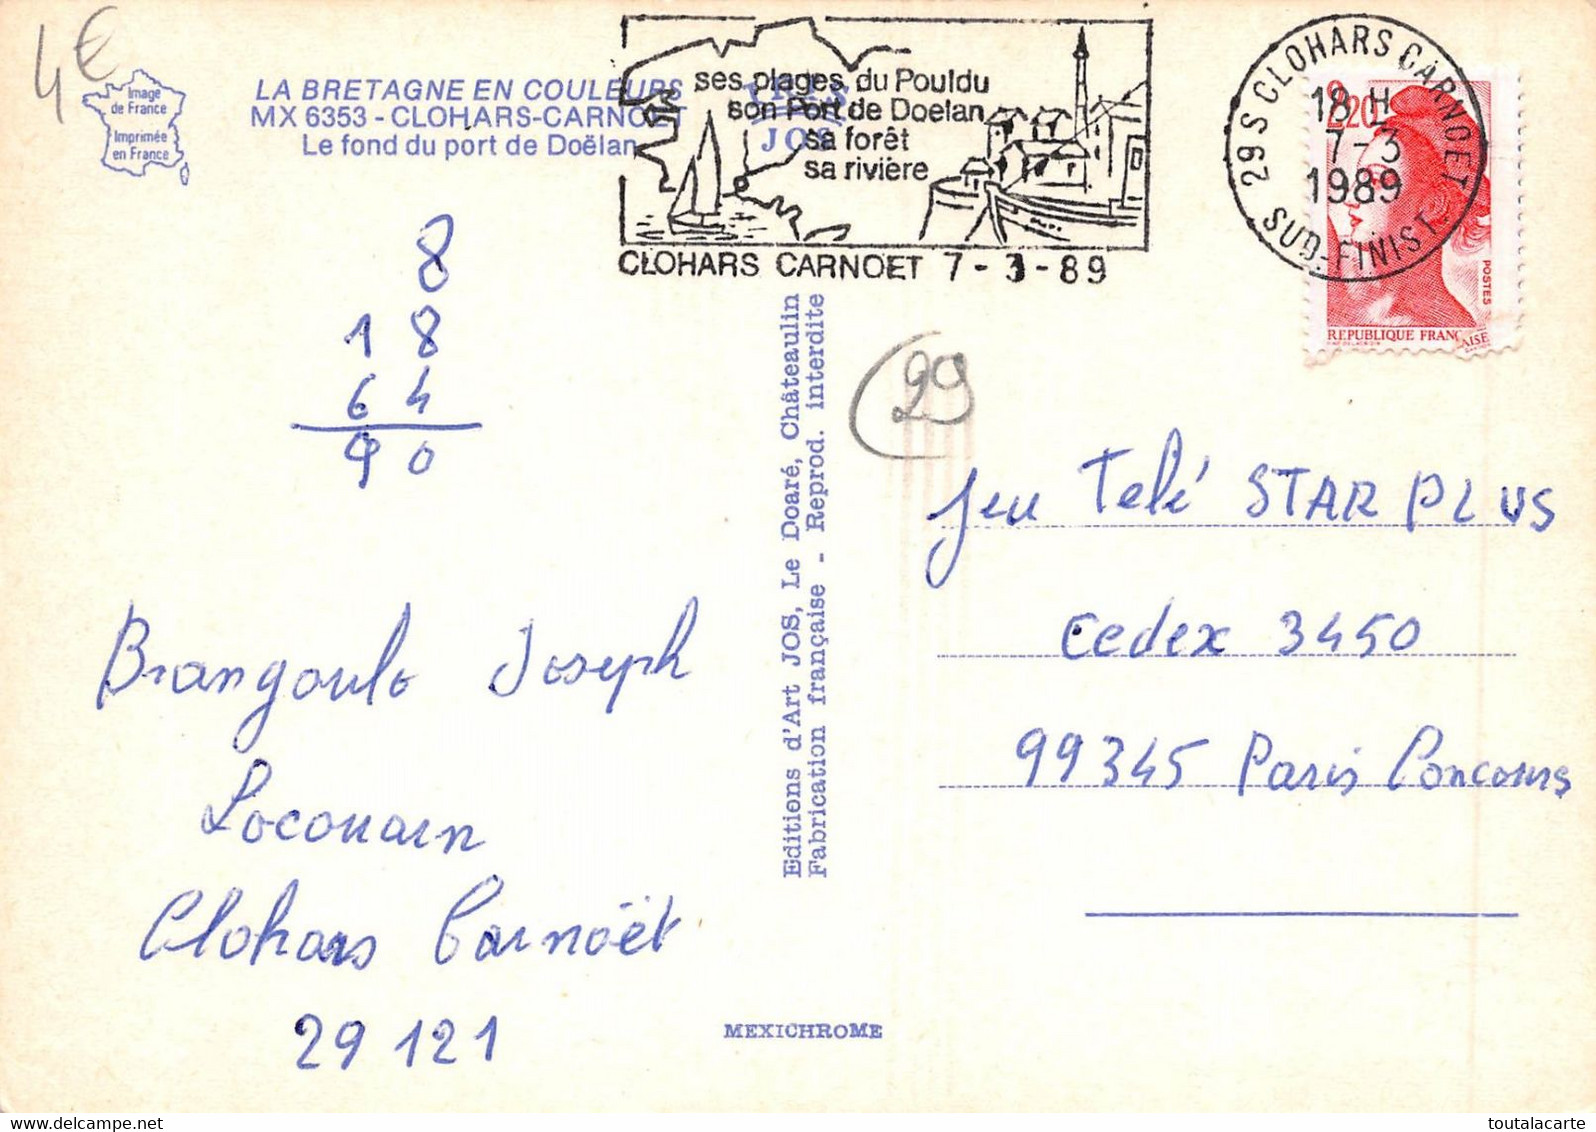 4€
Image
de France
Imprimée
en France
LA BRETAGNE EN COULEURS
MX 6353 - CLOHARS-CARNOET
Le fond du port de Doëlan
JOS
ses plages du Pouldu
son Port de Doelan
sa forêt
sa rivière
CLOHARS CARNOET 7-3-89
29 S CLOHARS CARNOET
18 H
7-3
1989
SUD-FINIST
2,20
POSTES
REPUBLIQUE FRANÇAISE
8
18
64
90
29
Editions d'Art JOS, Le Doaré, Châteaulin
Fabrication française - Reprod. interdite
Jeu Telé STAR PLUS
Cedex 3450
99345 Paris Concours
Brangoulo Joseph
Locouarn
Clohars Carnoët
29 121
MEXICHROME
toutalacarte